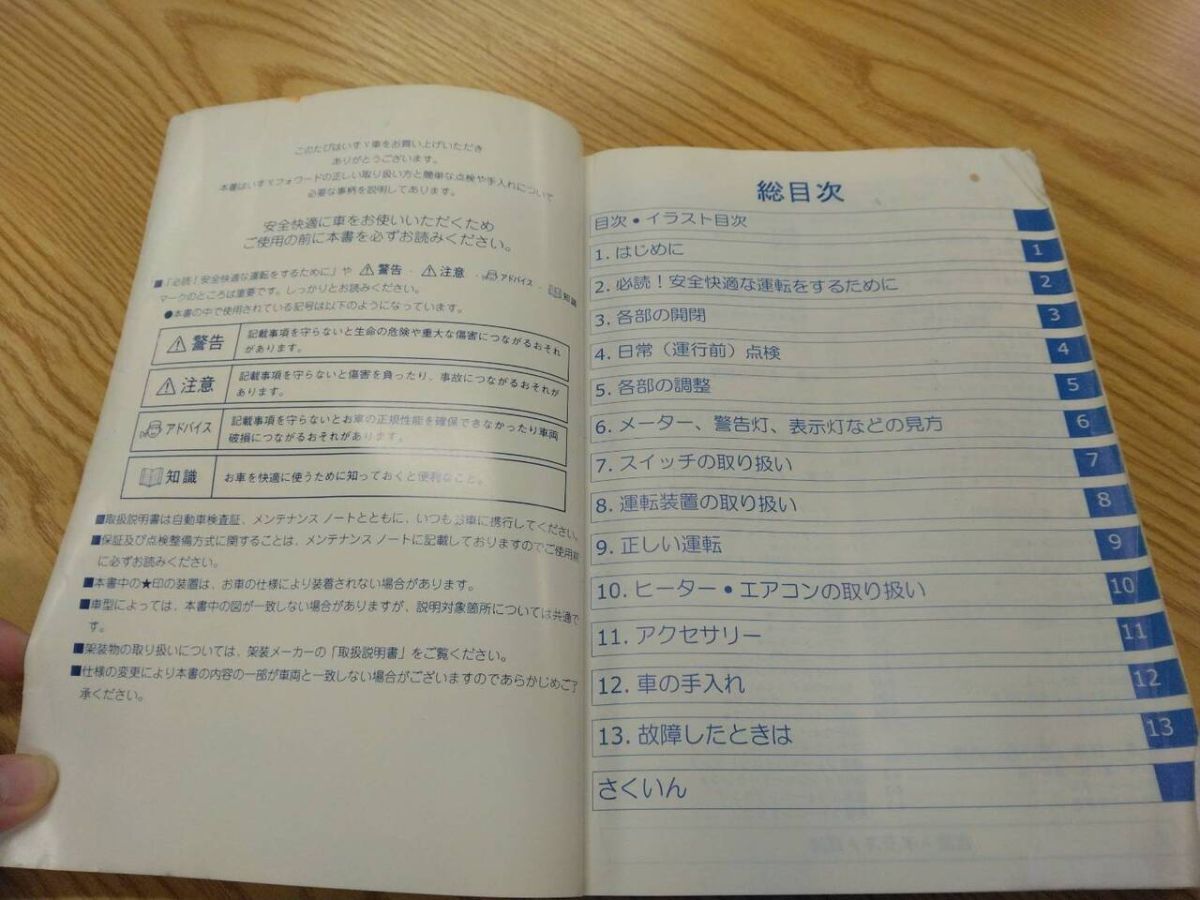 このたびはいすゞ車をお買い上げいただき
ありがとうございます。
本書はいすゞフォワードの正しい取り扱い方と簡単な点検や手入れについて
必要な事柄を説明してあります。
安全快適に車をお使いいただくため
ご使用の前に本書を必ずお読みください。
■「必読！安全快適な運転をするために」や ⚠警告 ・ ⚠注意 ・ アドバイス ・ 知識
マークのところは重要です。しっかりとお読みください。
●本書の中で使用されている記号は以下のようになっています。
⚠警告
記載事項を守らないと生命の危険や重大な傷害につながるおそれ
があります。
⚠注意
記載事項を守らないと傷害を負ったり、事故につながるおそれが
あります。
アドバイス
記載事項を守らないとお車の正規性能を確保できなかったり車両
破損につながるおそれがあります。
知識
お車を快適に使うために知っておくと便利なこと。
■取扱説明書は自動車検査証、メンテナンス ノートとともに、いつもお車に携行してください。
■保証及び点検整備方式に関することは、メンテナンス ノートに記載しておりますのでご使用前
に必ずお読みください。
■本書中の★印の装置は、お車の仕様により装着されない場合があります。
■車型によっては、本書中の図が一致しない場合がありますが、説明対象箇所については共通で
す。
■架装物の取り扱いについては、架装メーカーの「取扱説明書」をご覧ください。
■仕様の変更により本書の内容の一部が車両と一致しない場合がございますのであらかじめご了
承ください。
総目次
目次・イラスト目次
1. はじめに 1
2. 必読！安全快適な運転をするために 2
3. 各部の開閉 3
4. 日常（運行前）点検 4
5. 各部の調整 5
6. メーター、警告灯、表示灯などの見方 6
7. スイッチの取り扱い 7
8. 運転装置の取り扱い 8
9. 正しい運転 9
10. ヒーター・エアコンの取り扱い 10
11. アクセサリー 11
12. 車の手入れ 12
13. 故障したときは 13
さくいん